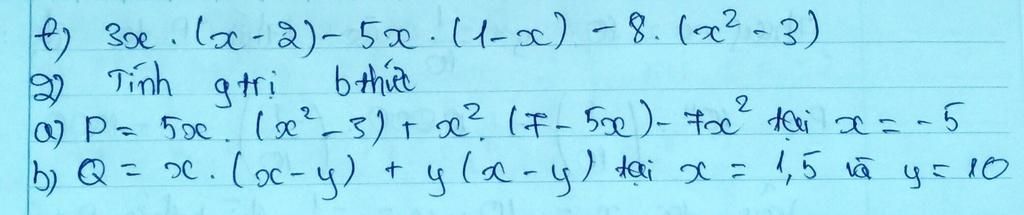 f) 3x . (x - 2) - 5x . (1 - x) - 8 . (x² - 3)
2) Tính g trị b thức
a) P = 5x . (x² - 3) + x² . (7 - 5x) - 7x² tại x = -5
b) Q = x . (x - y) + y (x - y) tại x = 1,5 và y = 10